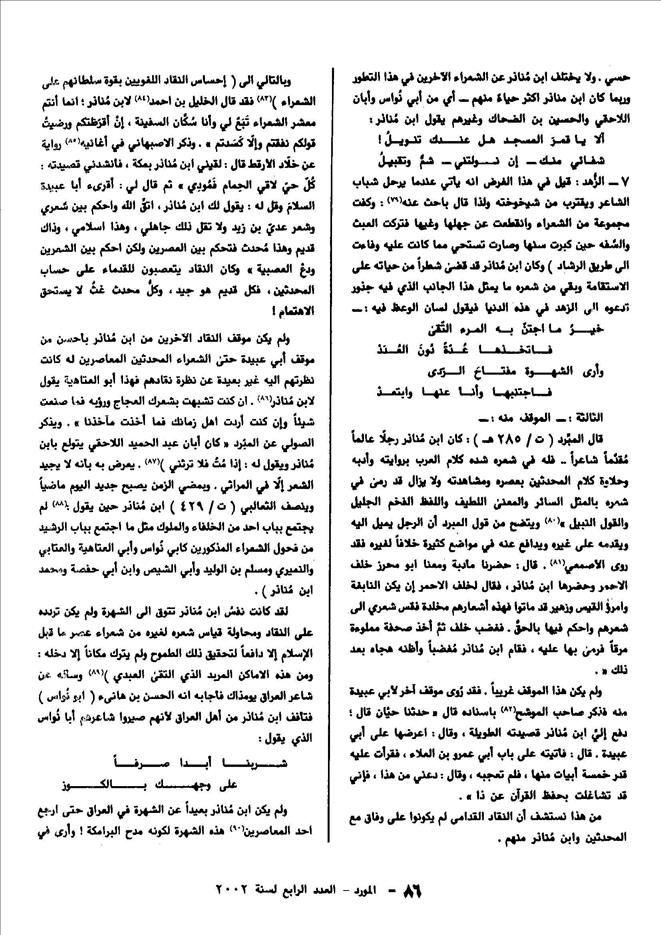 حسي . ولا يختلف ابن مُناذر عن الشعراء الآخرين في هذا التطور
وربما كان ابن مناذر اكثر حياءً منهم ــ أي من أبي نُواس وأبان
اللاحقي والحسين بن الضحاك وغيرهم يقول ابن مُناذر :
ألا يا قمرَ المسجد هل عندك تنويلُ !
شفائي منك ــ إن نولتني ــ شمٌ وتقبيلُ
٧ ــ الزُهد : قيل في هذا الفرض انه يأتي عندما يرحل شباب
الشاعر ويقترب من شيخوخته ولذا قال باحث عنه(٧٩) : وكفت
مجموعة من الشعراء وانقطعت عن جهلها وغيها فتركت العبث
والسَّفه حين كبرت سنها وصارت تستحي مما كانت عليه وفاءت
الى طريق الرشاد ) وكان ابن مُناذر قد قضىٰ شطراً من حياته على
الاستقامة وبقي من شعره ما يمثل هذا الجانب الذي فيه جذور
تدعوه الى الزهد في هذه الدنيا فيقول لسان الوعظ فيه : ــ
خيرُ ما اجتنّ به المرء التُقىٰ
فاتخذها عُدّةً دُونَ العُدَدْ
وأرى الشهوة مفتاحَ الرّدى
فاجتنبها وأنا عنها وابتعدْ
الثالثة : ــ الموقف منه : ــ
قال المبُرد ( ت / ٢٨٥ هـ ) : كان ابن مُناذر رجلًا عالماً
مُقدّماً شاعراً ــ فله في شعره شده كلام العرب بروايته وأدبه
وحلاوة كلام المحدثين بعصره ومشاهدته ولا يزال قد رمى في
شعره بالمثل السائر والمعنى اللطيف واللفظ الفخم الجليل
والقول النبيل »(٨٠) ويتضح من قول المبرد أن الرجل يميل اليه
ويقدمه على غيره ويدافع عنه في مواضع كثيرة خلافاً لغيره فقد
روى الأصمعي(٨١) . قال : حضرنا مادبة ومعنا أبو محرز خلف
الاحمر وحضرها ابن مُناذر ، فقال لخلف الاحمر إن يكن النابغة
وامرؤ القيس وزهير قد ماتوا فهذه أشعارهم مخلدة فقس شعري الى
شعرهم واحكم فيها بالحقّ . فغضب خلف ثمّ أخذ صحفة مملوءة
مرقاً فرمى بها عليه ، فقام ابن مُناذر مُغضباً وأظنه هجاه بعد
ذلك » .
ولم يكن هذا الموقف غريباً . فقد رُوى موقف آخر لأبي عبيدة
منه فذكر صاحب الموشح(٨٢) باسناده قال « حدثنا حيّان قال ؛
دفع إليّ ابن مُناذر قصيدته الطويلة ، وقال : اعرضها على أبي
عبيدة . قال : فأتيته على باب أبي عمرو بن العلاء ، فقرأت عليه
قدر خمسة أبيات منها ، فلم تعجبه ، وقال : دعني من هذا ، فإني
قد تشاغلت بحفظ القرآن عن ذا » .
من هذا نستشف أن النقاد القدامى لم يكونوا على وفاق مع
المحدثين وابن مُناذر منهم .
وبالتالي الى ( إحساس النقاد اللغويين بقوة سلطانهم على
الشعراء )(٨٣) فقد قال الخليل بن احمد(٨٤) لابن مُناذر ؛ انما أنتم
معشر الشعراء تَبَعٌ لي وأنا سُكّان السفينة ، إنْ أقرَظتكم ورضيتُ
قولكم نفقتم وإلّا كَسَدتم » . وذكر الاصبهاني في أغانيه(٨٥) رواية
عن خلّاد الأرقط قال : لقيني ابن مُناذر بمكة ، فانشدني قصيدته :
كُلّ حيّ لاقي الحِمام فَمُودِي » ثم قال لي : أقرىء أبا عبيدة
السلامَ وقل له : يقول لك ابن مُناذر ، اتقِ الله واحكم بين شعري
وشعر عديّ بن زيد ولا تقل ذلك جاهلي ، وهذا اسلامي ، وذاك
قديم وهذا مُحدث فتحكم بين العصرين ولكن احكم بين الشعرين
ودعْ العصبية » وكان النقاد يتعصبون للقدماء على حساب
المحدثين ، فكل قديم هو جيد ، وكلُ محدث غثٌ لا يستحق
الاهتمام !
ولم يكن موقف النقاد الآخرين من ابن مُناذر بأحسن من
موقف أبي عبيدة حتىٰ الشعراء المحدثين المعاصرين له كانت
نظرتهم اليه غير بعيدة عن نظرة نقادهم فهذا أبو العتاهية يقول
لابن مُناذر(٨٦) . ان كنت تشبهت بشعرك العجاج ورؤبه فما صنعت
شيئاً وإن كنت أردت اهل زمانك فما أخذت مأخذنا » . ويذكر
الصولي عن المبُرد « كان أبان عبد الحميد اللاحقي يتولع بابن
مُناذر ويقول له : إذا مُتْ فلا ترثني )(٨٧) . يعرض به بأنه لا يجيد
الشعر إلّا في المراثي . وبمضي الزمن يصبح جديد اليوم ماضياً
وينصف الثعالبي ( ت / ٤٢٩ ) ابن مُناذر حين يقول(٨٨) لم
يجتمع بباب احد من الخلفاء والملوك مثل ما اجتمع بباب الرشيد
من فحول الشعراء المذكورين كابي نُواس وأبي العتاهية والعتابي
والنميري ومسلم بن الوليد وأبي الشيص وابن أبي حفصة ومحمد
ابن مُناذر ) .
لقد كانت نفسُ ابن مُناذر تتوق الى الشهرة ولم يكن تردده
على النقاد ومحاولة قياس شعره لغيره من شعراء عصر ما قبل
الإسلام إلا دافعاً لتحقيق ذلك الطموح ولم يترك مكاناً إلا دخله :
ومن هذه الاماكن المربد الذي التقى العبدي )(٨٩) وسأله عن
شاعر العراق يومذاك فأجابه انه الحسن بن هانىء ( ابو نُواس )
فتأفف ابن مُناذر من أهل العراق لأنهم صيروا شاعرهم أبا نُواس
الذي يقول :
شربنا أبدا صرفاً
على وجهك بالكوز
ولم يكن ابن مُناذر بعيداً عن الشهرة في العراق حتى ارجع
احد المعاصرين(٩٠) هذه الشهرة لكونه مدح البرامكة ! وأرى في
٨٦ – المورد – العدد الرابع لسنة ٢٠٠٢